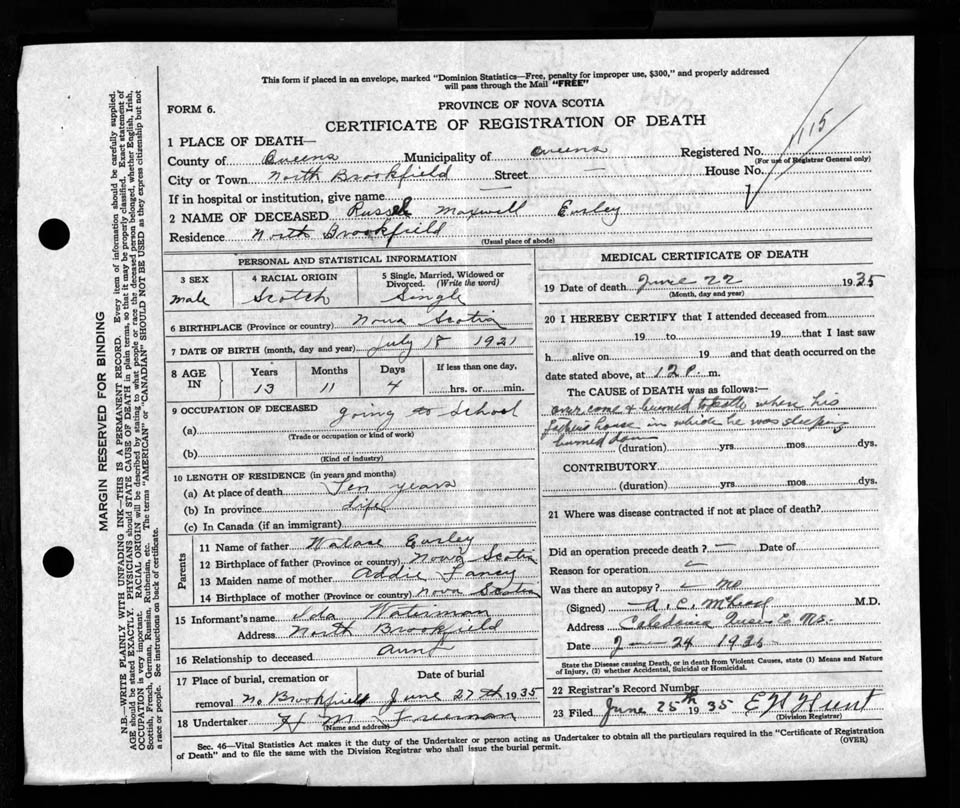 This form if placed in an envelope, marked "Dominion Statistics—Free, penalty for improper use, $300," and properly addressed
will pass through the Mail "FREE"
FORM 6.
PROVINCE OF NOVA SCOTIA
CERTIFICATE OF REGISTRATION OF DEATH
115
1 PLACE OF DEATH—
County of Queens Municipality of Queens Registered No.
(For use of Registrar General only)
City or Town North Brookfield Street — House No.
If in hospital or institution, give name —
2 NAME OF DECEASED Russel Maxwell Eurley
Residence North Brookfield
(Usual place of abode)
PERSONAL AND STATISTICAL INFORMATION
3 SEX male
4 RACIAL ORIGIN Scotch
5 Single, Married, Widowed or Divorced. (Write the word) Single
6 BIRTHPLACE (Province or country) Nova Scotia
7 DATE OF BIRTH (month, day and year) July 18 1921
8 AGE IN Years Months Days If less than one day,
13 11 4 hrs. or min.
9 OCCUPATION OF DECEASED going to School
(a)
(Trade or occupation or kind of work)
(b)
(Kind of industry)
10 LENGTH OF RESIDENCE (in years and months)
(a) At place of death Ten years
(b) In province life
(c) In Canada (if an immigrant)
Parents
11 Name of father Walace Eurley
12 Birthplace of father (Province or country) Nova Scotia
13 Maiden name of mother Addie
14 Birthplace of mother (Province or country) Nova Scotia
15 Informant's name Ida Waterman
Address North Brookfield
16 Relationship to deceased aunt
17 Place of burial, cremation or Date of burial
removal No. Brookfield June 27th 1935
18 Undertaker H M Freeman
(Name and address)
MEDICAL CERTIFICATE OF DEATH
19 Date of death June 22 1935
(Month, day and year)
20 I HEREBY CERTIFY that I attended deceased from
19 to 19 that I last saw
h alive on 19 and that death occurred on the
date stated above, at 12 P. m.
The CAUSE of DEATH was as follows:—
over come & burned to death when his
father's house in which he was sleeping
burned down
(duration) yrs. mos. dys.
CONTRIBUTORY
(duration) yrs. mos. dys.
21 Where was disease contracted if not at place of death?
Did an operation precede death? — Date of
Reason for operation
Was there an autopsy? no
(Signed) M.D.
Address Caledonia Queens Co N.S.
Date J 24 1935
State the Disease causing Death, or in death from Violent Causes, state (1) Means and Nature
of Injury, (2) whether Accidental, Suicidal or Homicidal.
22 Registrar's Record Number
23 Filed June 25th 1935 E H Hunt
(Division Registrar)
Sec. 46—Vital Statistics Act makes it the duty of the Undertaker or person acting as Undertaker to obtain all the particulars required in the "Certificate of Registration
of Death" and to file the same with the Division Registrar who shall issue the burial permit.
(OVER)
MARGIN RESERVED FOR BINDING
N.B.—WRITE PLAINLY WITH UNFADING INK—THIS IS A PERMANENT RECORD. Every item of information should be carefully supplied.
AGE should be stated EXACTLY. PHYSICIANS should STATE CAUSE OF DEATH in plain terms, so that it may be properly classified. Exact statement of
OCCUPATION is very important. RACIAL ORIGIN will be described by stating to what people or race the deceased person belonged, whether English, Irish,
Scottish, French, German, Russian, Ruthenian, etc. The terms "AMERICAN" or "CANADIAN" SHOULD NOT BE USED as they express citizenship but not
a race or people. See instructions on back of certificate.